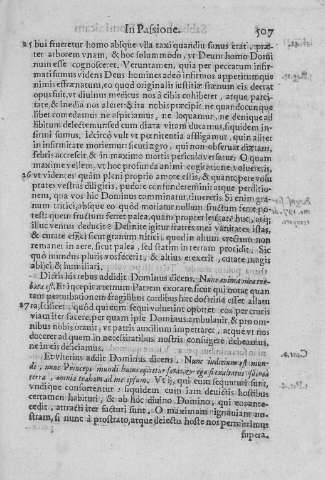 In Passione. 507
25 bus frueretur homo absque vlla taxi quandiu sanus erat, præ-
ter arborem vnam, & hoc solummodo, vt Deum homo Domi
num esse cognosceret. Veruntamen, quia per peccatum infir-
mati sumus videns Deus homines adeo infirmos appetitumque
nimis effrænatum, eo quod originalis iustitiæ frænum eis deerat
opus fuit, vt diuinus medicus nos à cibis cohiberet, atque parci-
tate, & inedia nos aleret & ita nobis præcipit ne quandocunque
libet comedamus ne aspiciamus, ne loquamur, ne denique ad
libitum delectemur sed cum diæta vitam ducamus, siquidem in-
firmi sumus, idcircò vult vt pœnitentia affligamur, quin aliter
in infirmitate moriemur sicut ægro, qui non obseruat diætam,
febris accrescit, & in maximo mortis periculo versatur. O quam
maxime vellem, vt hoc profunda animi cogitatione volueretis,
26 vt videntes quàm pleni proprio amore estis, & quantopere volu
ptates vestras diligitis, pudore confunderemini atque perditio-
nem, qua vos hoc Dominus comminatur, timeretis. Si enim gra-
num tritici, absque eo quòd moriatur nullum fructum ferre po-
test: quem fructum ferret palea, quam propter leuitatem huc, atque
illuc ventus deducit
& curate effici sicut granum tritici, quod in alium
remanet in aere, sicut palea, sed statim in terram procidit. Sic
quò mundus pluris vos fecerit, & altius erexerit, curate magis
abijci & humiliari.
Dictis his rebus addidit Dominus dicens. Nunc anima mea tur-
bata est. Et incepit æternum Patrem exorare, sicut qui notat quan
tam perturbationem fragilibus cordibus hæc doctrina esset allatu
27 ra, scilicet, quòd quieum sequi voluerint oportet eos per crucis
viam iter facere, per quam ipse Dominus ambulauit, & pro om-
nibus nobis orauit, vt patris auxilium inpertiret, atque vt nos
doceret ad quem in necessitatibus nostris confugere debeamus,
ne in eis deficiamus.
Et vlterius addit Dominus dicens. Nunc iudicium est mun-
di, nunc Princeps mundi huius eijcietur foras, & ego si exaltatus fuero à
terra, omnia traham ad me ipsum. Vt ij, qui eum sequuntur sunt,
vndique confortentur: siquidem cum iam deuictis hostibus
certamen habituri, & ab hoc diuino Domino, qui
cedit, attracti iter facturi sunt. O maximam ignauiam no-
stram, si nunc à prostrato, atque deiecto hoste nos permittimus
supera-